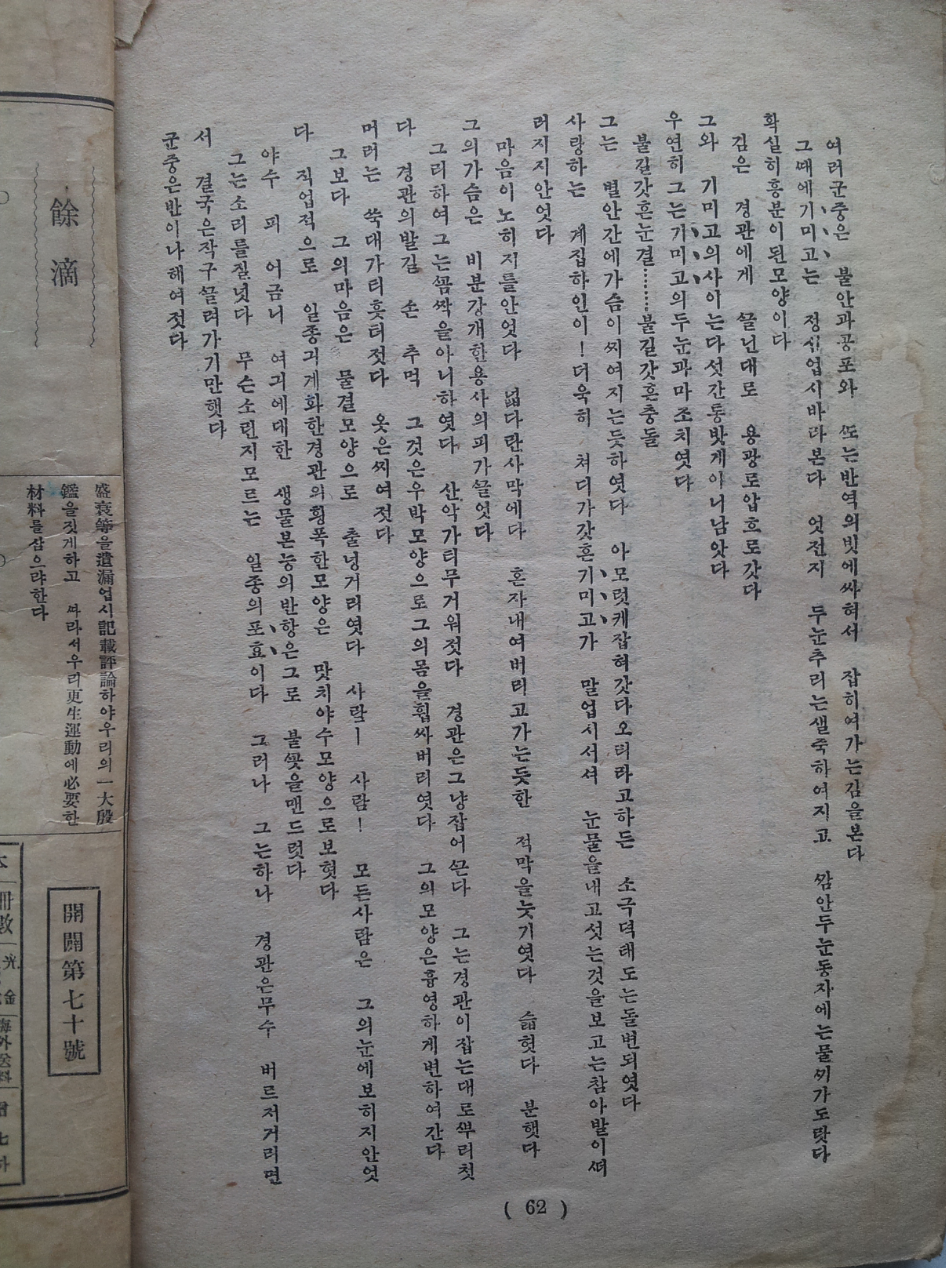 여러군중은 불안과공포와 ᄯᅩ는반역의빗에싸혀서 잡히여가는김을본다
그때에기미고는 정신업시바라본다 엇전지 두눈추리는샐죽하여지고 ᄭᅡᆷ안두눈동자에는물ᄭᅵ가도랏다
확실히흥분이된모양이다
김은 경관에게 ᄭᅳᆯ닌대로 용광로압흐로갓다
그와 기미고의사이는다섯간통밧게아니남앗다
우연히그는기미고의두눈과마조치엿다
불길갓흔눈결……불길갓흔충돌
그는 별안간에가슴이ᄶᅵ여지는듯하엿다 아모럿케잡혀갓다오리라고하든 소극뎍태도는돌변되엿다
사랑하는 계집하인이!더욱히 쳐디가갓흔기미고가 말업시서셔 눈물을내고섯는것을보고는참아발이ᄯᅥ
러지지안엇다
마음이노히지를안엇다 넓다란사막에다 혼자내여버리고가는듯한 적막을늣기엿다 슯헛다 분햇다
그의가슴은 비분강개한용사의피가ᄭᅳᆯ엇다
그리하여그는ᄭᅩᆷᄶᅡᆨ을아니하엿다 산악가티무거워젓다 경관은그냥잡어ᄭᅳᆫ다 그는경관이잡는대로ᄲᅮ리첫
다 경관의발길 손 추먹 그것은우박모양으로그의몸을휩싸버리엿다 그의모양은흉영하게변하여간다
머리는 쑥대가티흣터젓다 옷은ᄶᅵ여젓다
그보다 그의마음은 물결모양으로 출넝거리엿다 사람ㅣ 사람! 모든사람은 그의눈에보히지안엇
다 직업적으로 일종긔계화한경관의횡폭한모양은 맛치야수모양으로보혓다
야수 피 어금니 여긔에대한 생물본능의반항은그로 불ᄭᅩᆺ을맨드럿다
그는소리를질넛다 무슨소린지모르는 일종의포효이다 그러나 그는하나 경관은무수 버르저거리면
서 결국은작구ᄭᅳᆯ려가기만햇다
군중은반이나헤여젓다
( 62 )
餘滴
盛衰等을遺漏업시記載評論하야우리의一大殷
鑑을짓게하고 ᄯᅡ라서우리更生運動에必要한
材料를삼으랴한다
開闢第七十號